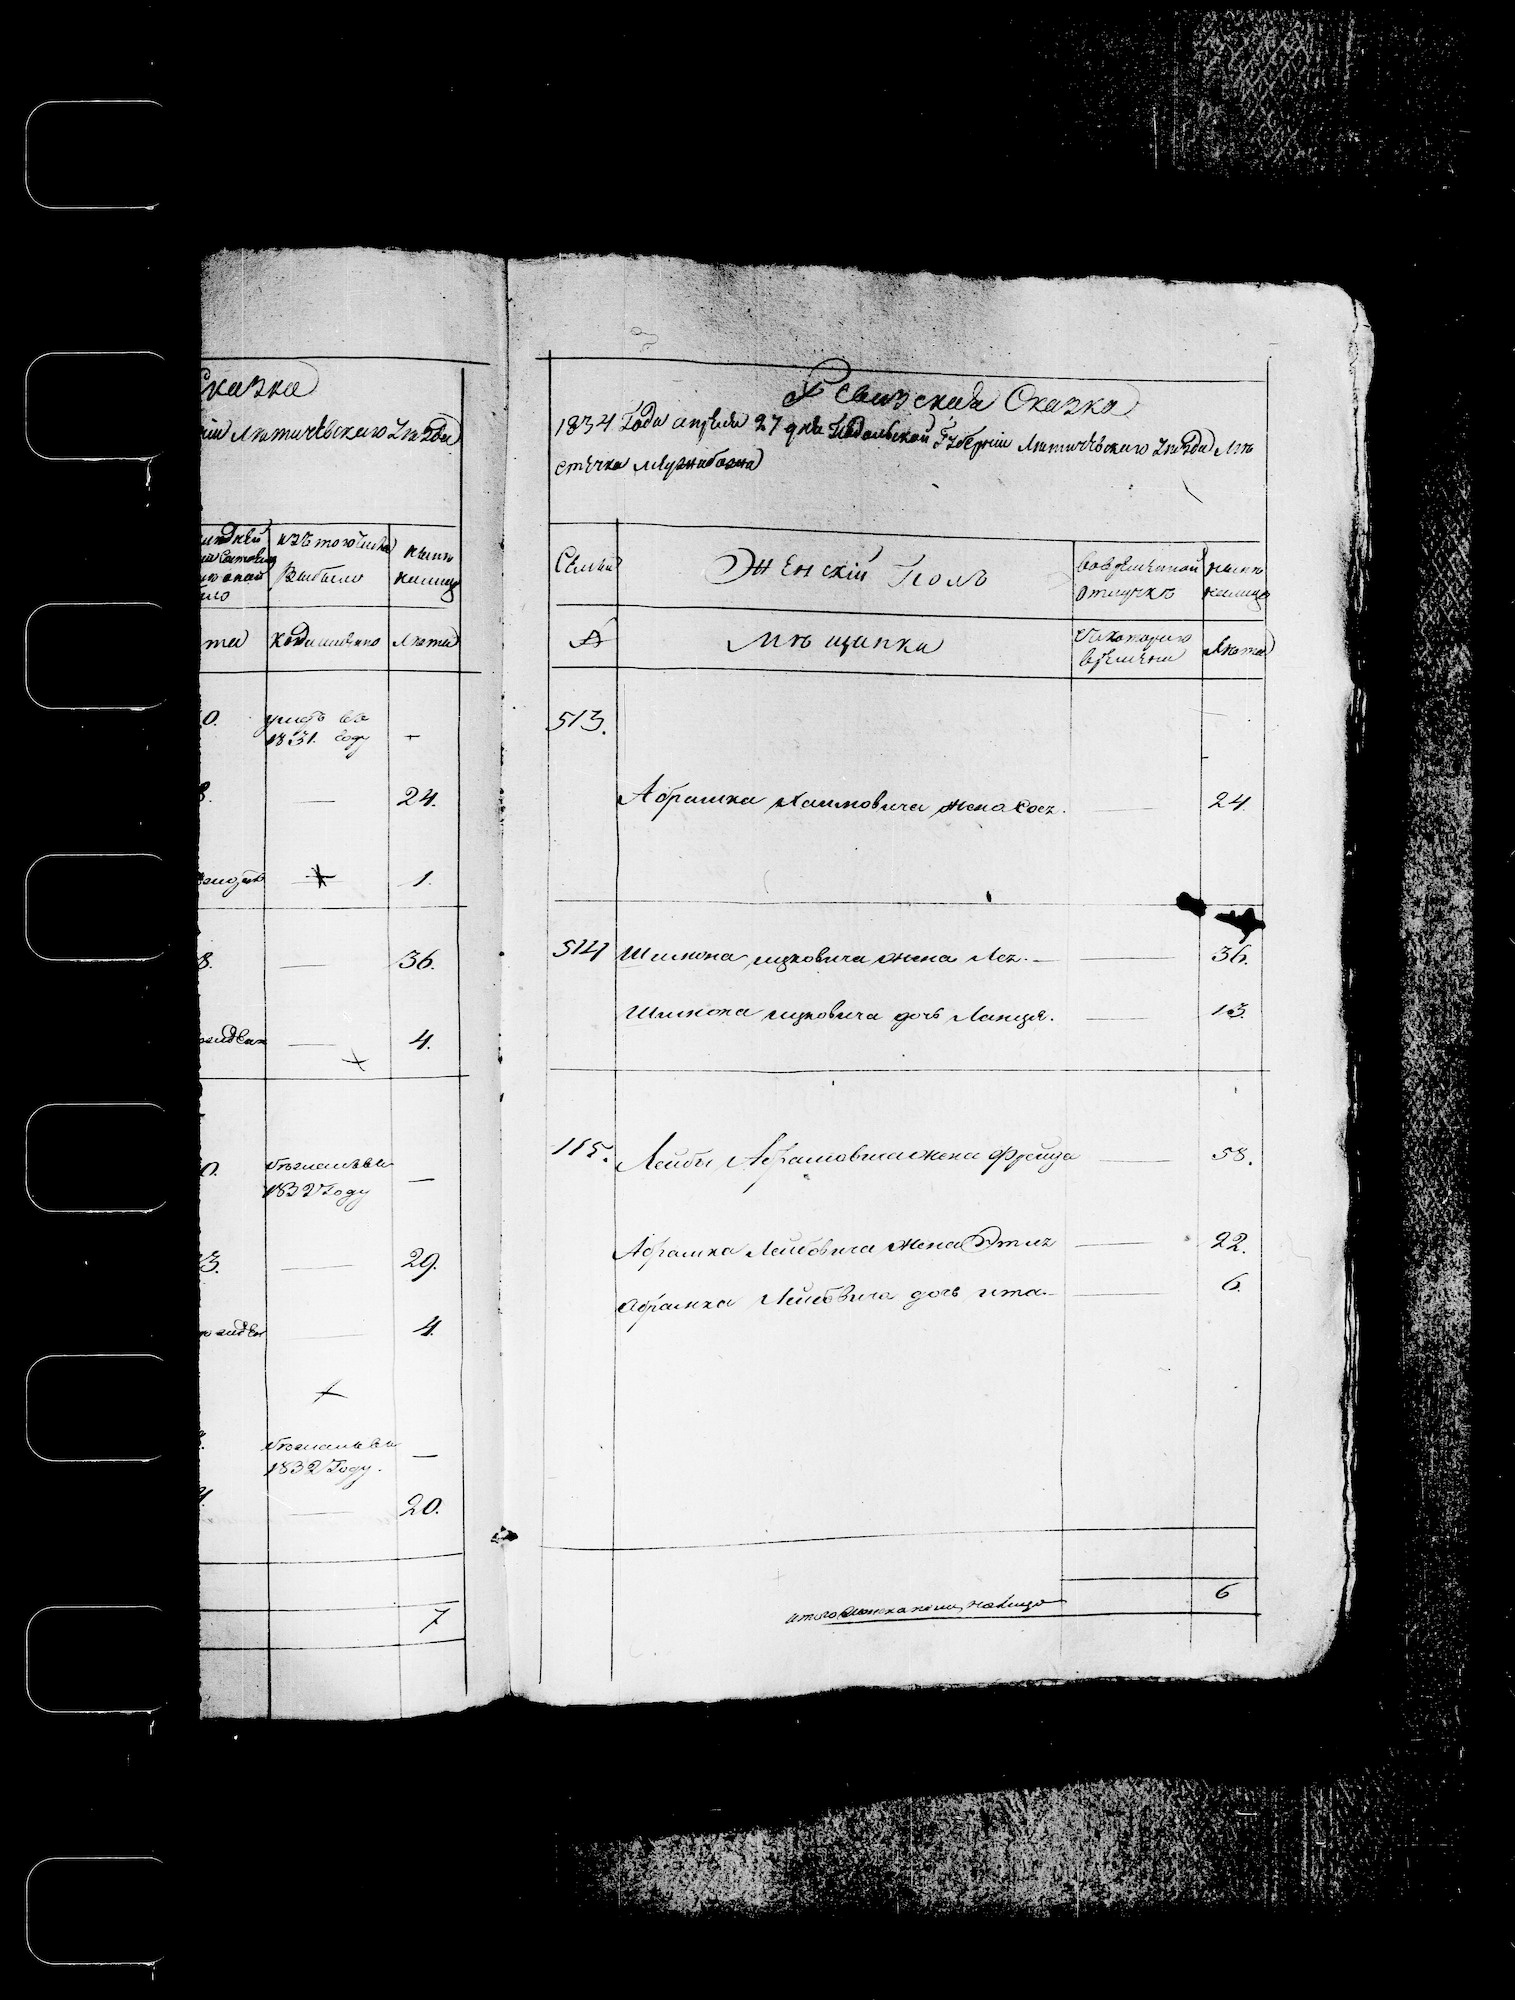 Сказка
Летичевскаго Уѣзда
изъ того числа нынѣ
Выбыло на лицо
та Когда именно Лѣта
0. умеръ въ
1831. году —
8. — 24.
— 1.
8. — 36.
— 4.
0.
1832 Году —
3. — 29.
— 4.
1832 Году. —
— 20.
7
Ревизская Сказка
1834 Года апреля 27 дня Подольской Губерніи Летичевскаго Уѣзда Мѣ
стечка Межибожа
Семьи Женскій Полъ Во временной нынѣ
отлучкѣ на лицо
Мѣщанка Съ котораго Лѣта
времени
513.
Абрамка Хаимовича жена Хося. — 24.
514 Шимона Ицковича жена Лея. — — 36.
Шимона Ицковича дочь Ланця. — 13.
115. Лейбы Абрамовича жена Фрейда — 58.
Абрамка Лейбовича жена Этля — 22.
Абрамка Лейбовича дочь Ита. — 6.
итого женска полу на лицо 6